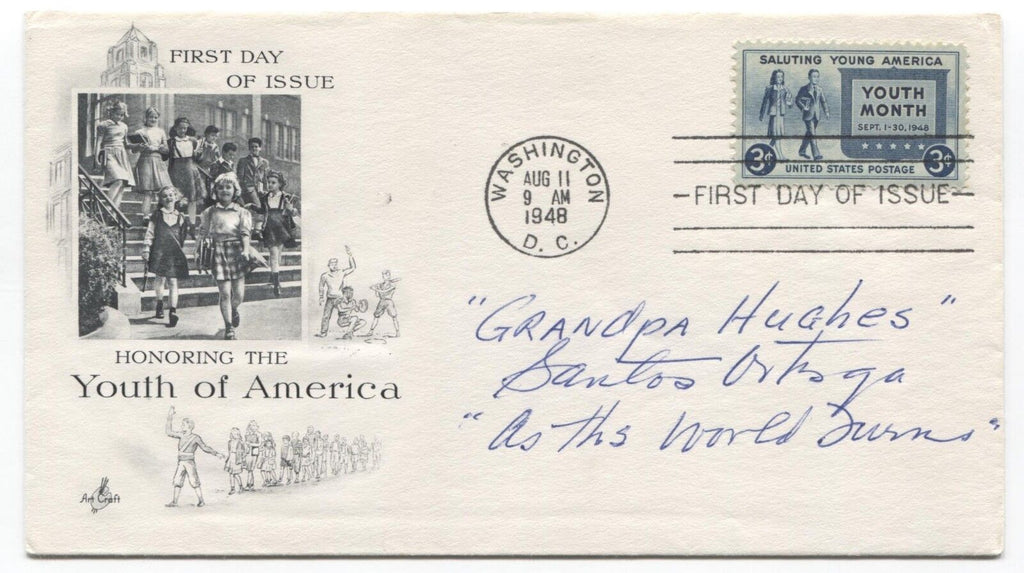 FIRST DAY
OF ISSUE
HONORING THE
Youth of America
Art Craft
WASHINGTON
AUG 11
9 AM
1948
D. C.
SALUTING YOUNG AMERICA
YOUTH
MONTH
SEPT. 1-30, 1948
3¢ 3¢
UNITED STATES POSTAGE
FIRST DAY OF ISSUE
"GRANDPA Hughes"
Santos Ortega
"As the World Turns"